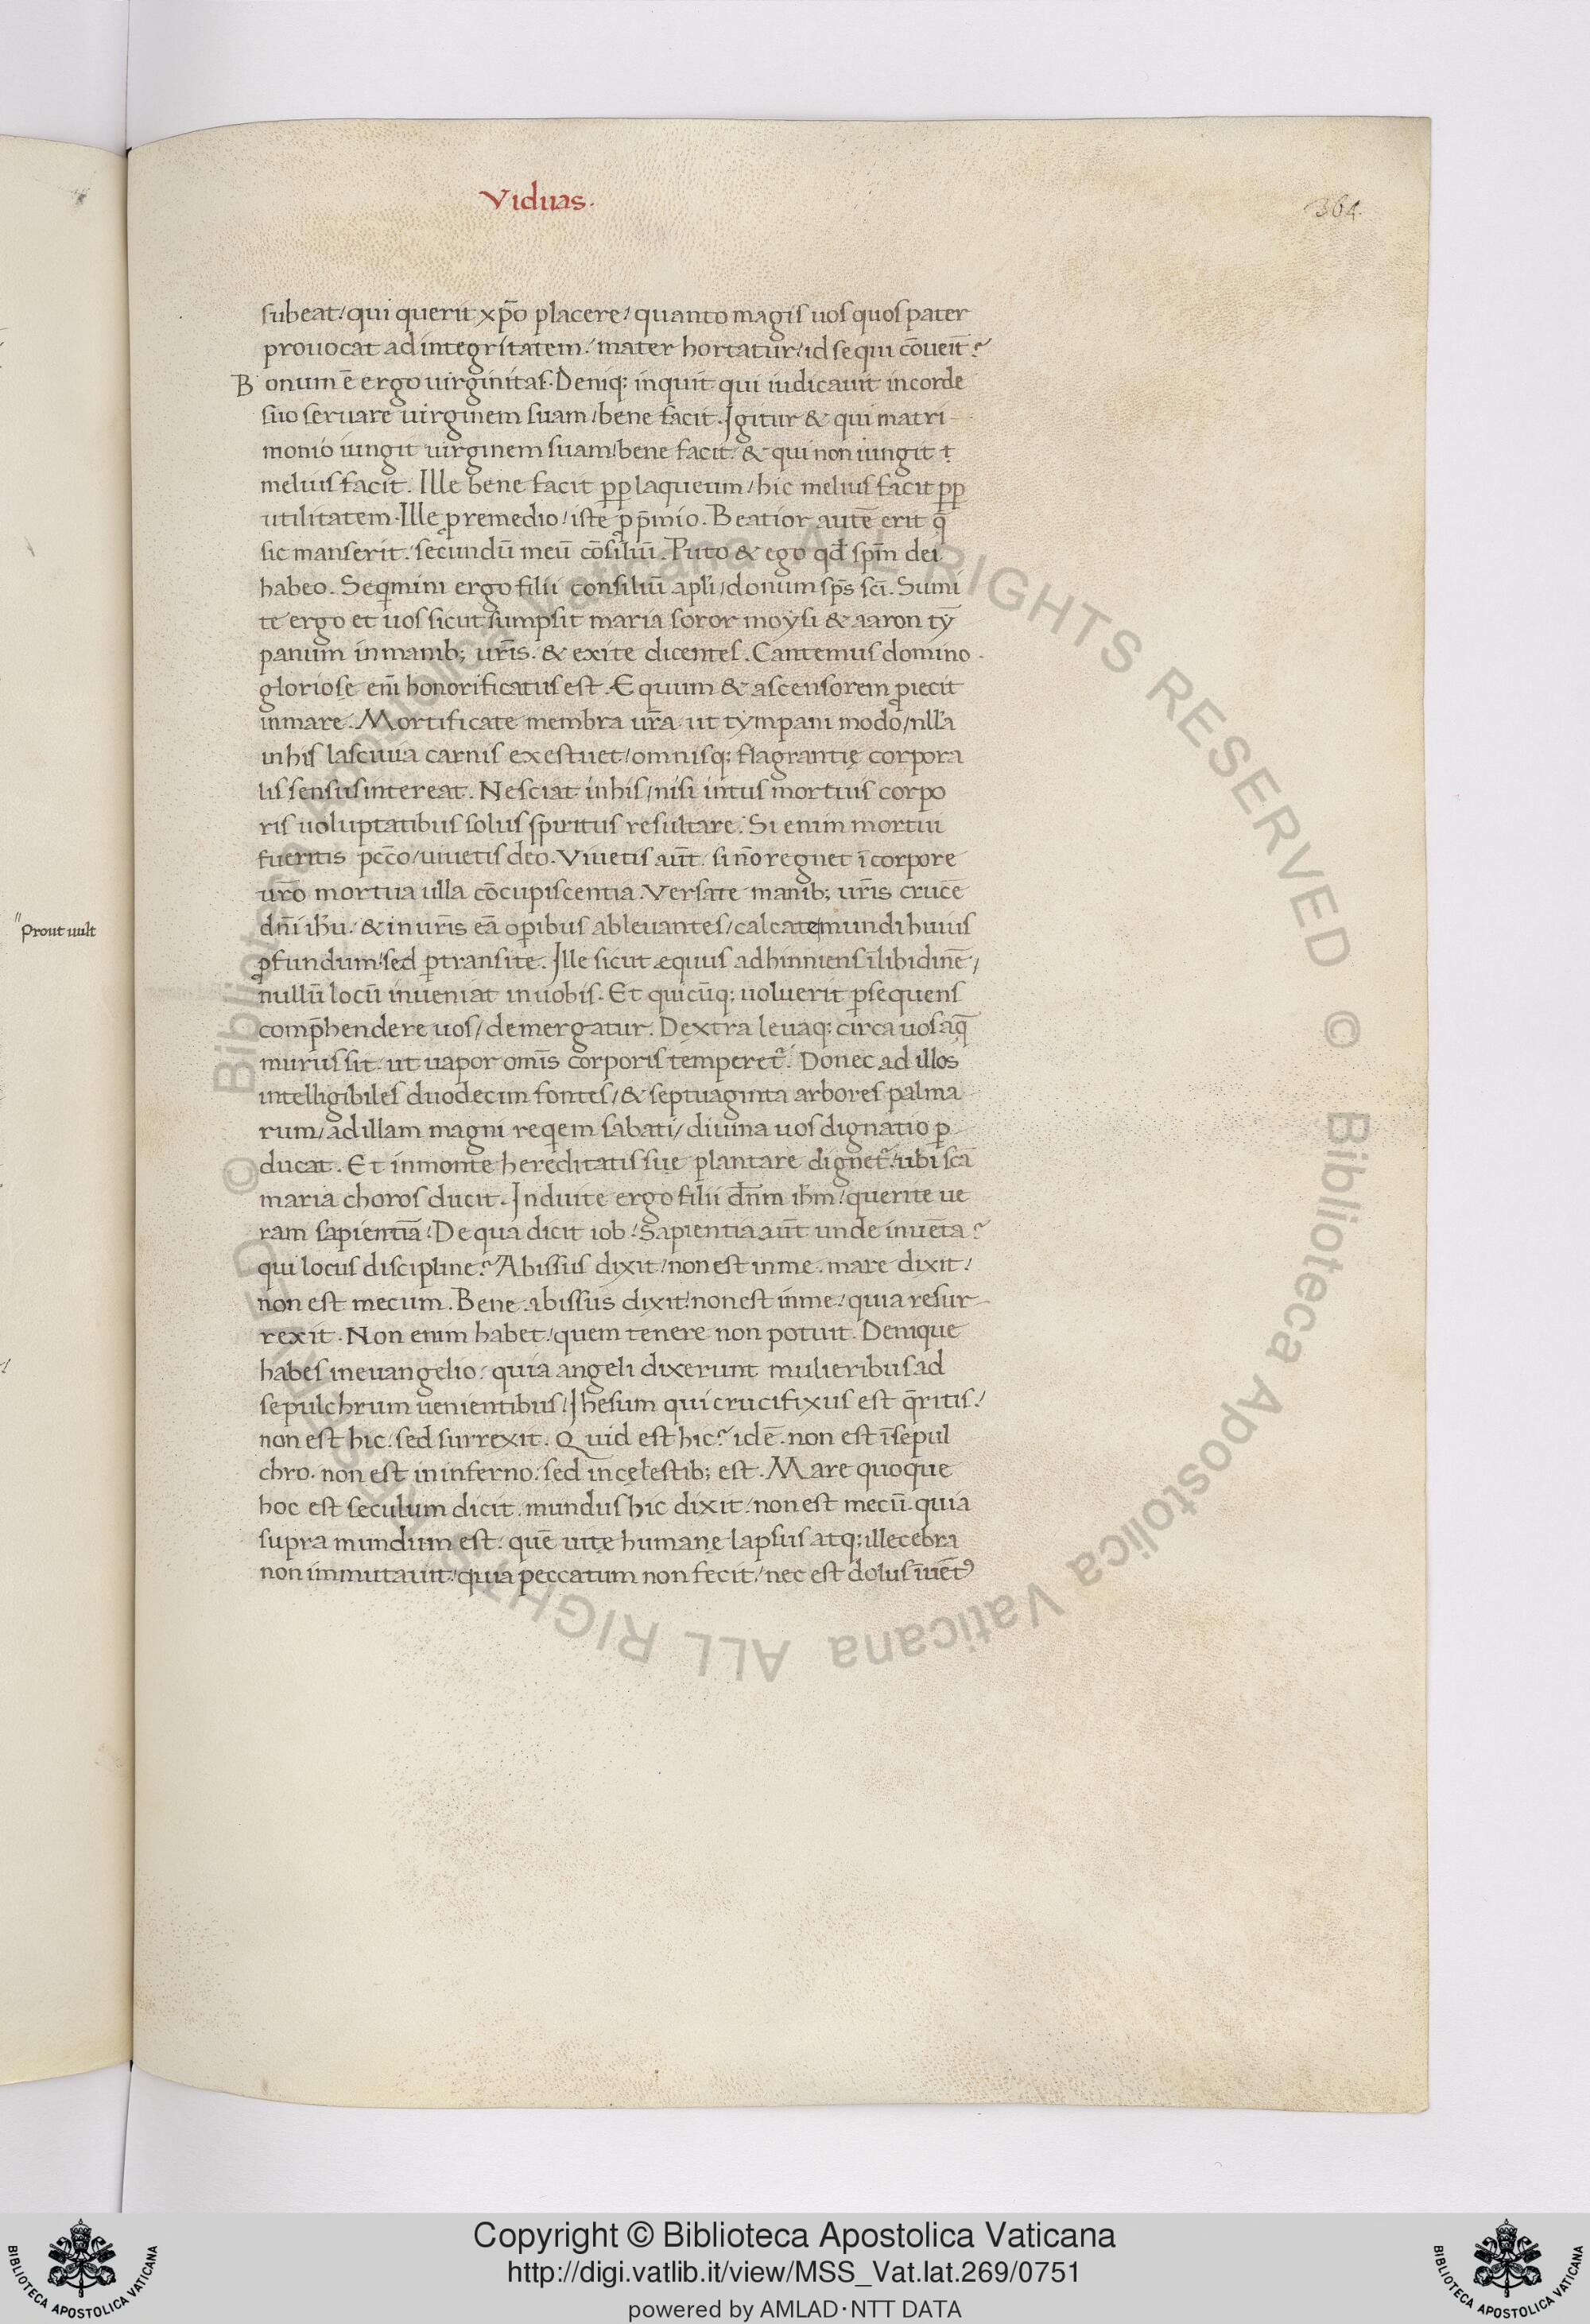 Viduas.
364.
subeat / qui querit xp̄o placere / quanto magis uos quos pater
prouocat ad integritatem / mater hortatur / id sequi cōueit̄ ?
Bonum ē ergo uirginitas. Deniq; inquit qui iudicauit in corde
suo seruare uirginem suam / bene facit. Igitur & qui matri-
monio iungit uirginem suam / bene facit. & qui non iungit
melius facit. Ille bene facit ꝓp laqueum / hic melius facit ꝓp
utilitatem. Ille ꝓ remedio / iste ꝓ p̄mio. Beatior autē erit q̄
sic manserit. secundū meū cōsiliū. Puto & ego qđ sp̄m dei
habeo. Seqmini ergo filii consiliū apl̄i / donum sp̄s sc̄i. Sumi
te ergo et uos sicut sumpsit maria soror moysi & aaron tȳ
panum in manib; ur̄is. & exite dicentes. Cantemus domino.
gloriose eni̅ honorificatus est. Equum & ascensorem ꝓiecit
in mare. Mortificate membra ur̄a ut tympani modo / nll̄a
in his lasciuia carnis exestuet / omnisq; flagrantię corpora
lis sensus intereat. Nesciat in his / nisi intus mortuis corpo
ris uoluptatibus solus spiritus resultare. Si enim mortui
fueritis pcc̄o / uiuetis deo. Viuetis aūt. si nō regnet ī corpore
ur̄o mortua ulla cōcupiscentia. Versate manib; ur̄is crucē
dn̄i ihū. & in ur̄is eā oꝑibus ableuantes / calcate mundi huius
ꝓfundum / sed ꝑtransite. Ille sicut æquus adhinniens ī libidinē /
nullū locū inueniat in uobis. Et quicūq; uoluerit ꝑsequens
comp̄hendere uos / demergatur. Dextra leuaq; circa uos aq̄
murus sit. ut uapor om̄s corporis temperet᷑. Donec ad illos
intelligibiles duodecim fontes / & septuaginta arbores palma
rum / ad illam magni reqiem sabati / diuina uos dignatio ꝑ
ducat. Et in monte hereditatis sue plantare dignet᷑ / ubi sc̄a
maria choros ducit. Induite ergo filii dn̄m ihm̄ / querite ue
ram sapientiā / De qua dicit iob / Sapientia aūt unde inuēta ?
qui locus discipline ? Abissus dixit / non est in me. mare dixit /
non est mecum. Bene abissus dixit / non est in me / quia resur-
rexit. Non enim habet / quem tenere non potuit. Denique
habes in euangelio / quia angeli dixerunt mulieribus ad
sepulchrum uenientibus / Ihesum qui crucifixus est q̄ritis /
non est hic / sed surrexit. Quid est hic ? idē. non est ī sepul
chro. non est in inferno / sed in cęlestib; est. Mare quoque
hoc est seculum dicit. mundus hic dixit / non est mecū. quia
supra mundum est / quē uitę humanę lapsus atq; illecebra
non immutauit / quia peccatum non fecit / nec est dolus īuēt᷒
prout uult
© Biblioteca Apostolica Vaticana ALL RIGHTS RESERVED © Biblioteca Apostolica Vaticana ALL RIGHTS RESERVED
Copyright © Biblioteca Apostolica Vaticana
http://digi.vatlib.it/view/MSS_Vat.lat.269/0751
powered by AMLAD·NTT DATA
BIBLIOTECA APOSTOLICA VATICANA
BIBLIOTECA APOSTOLICA VATICANA